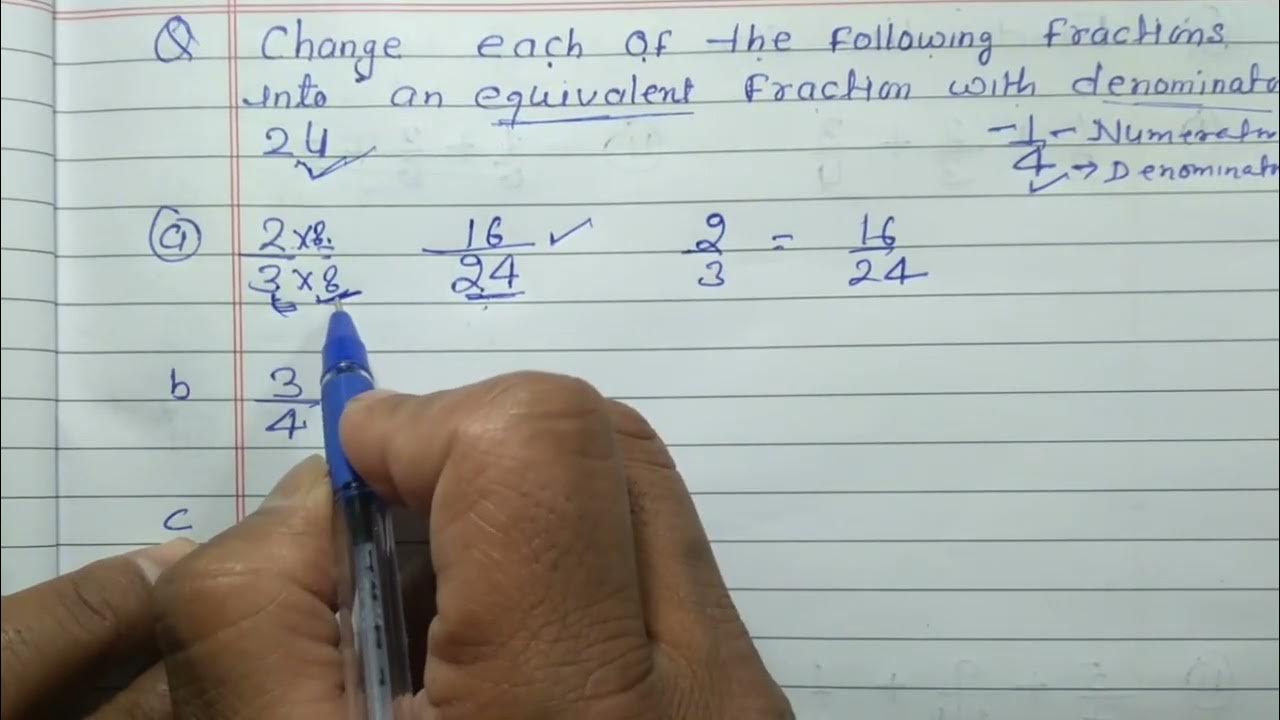 Q Change each of the following fractions
into an equivalent fraction with denominato
24
-1- Numerato
4 → Denominato
a 2×8 16 2 = 16
3×8 24 3 24
b 3
4
c